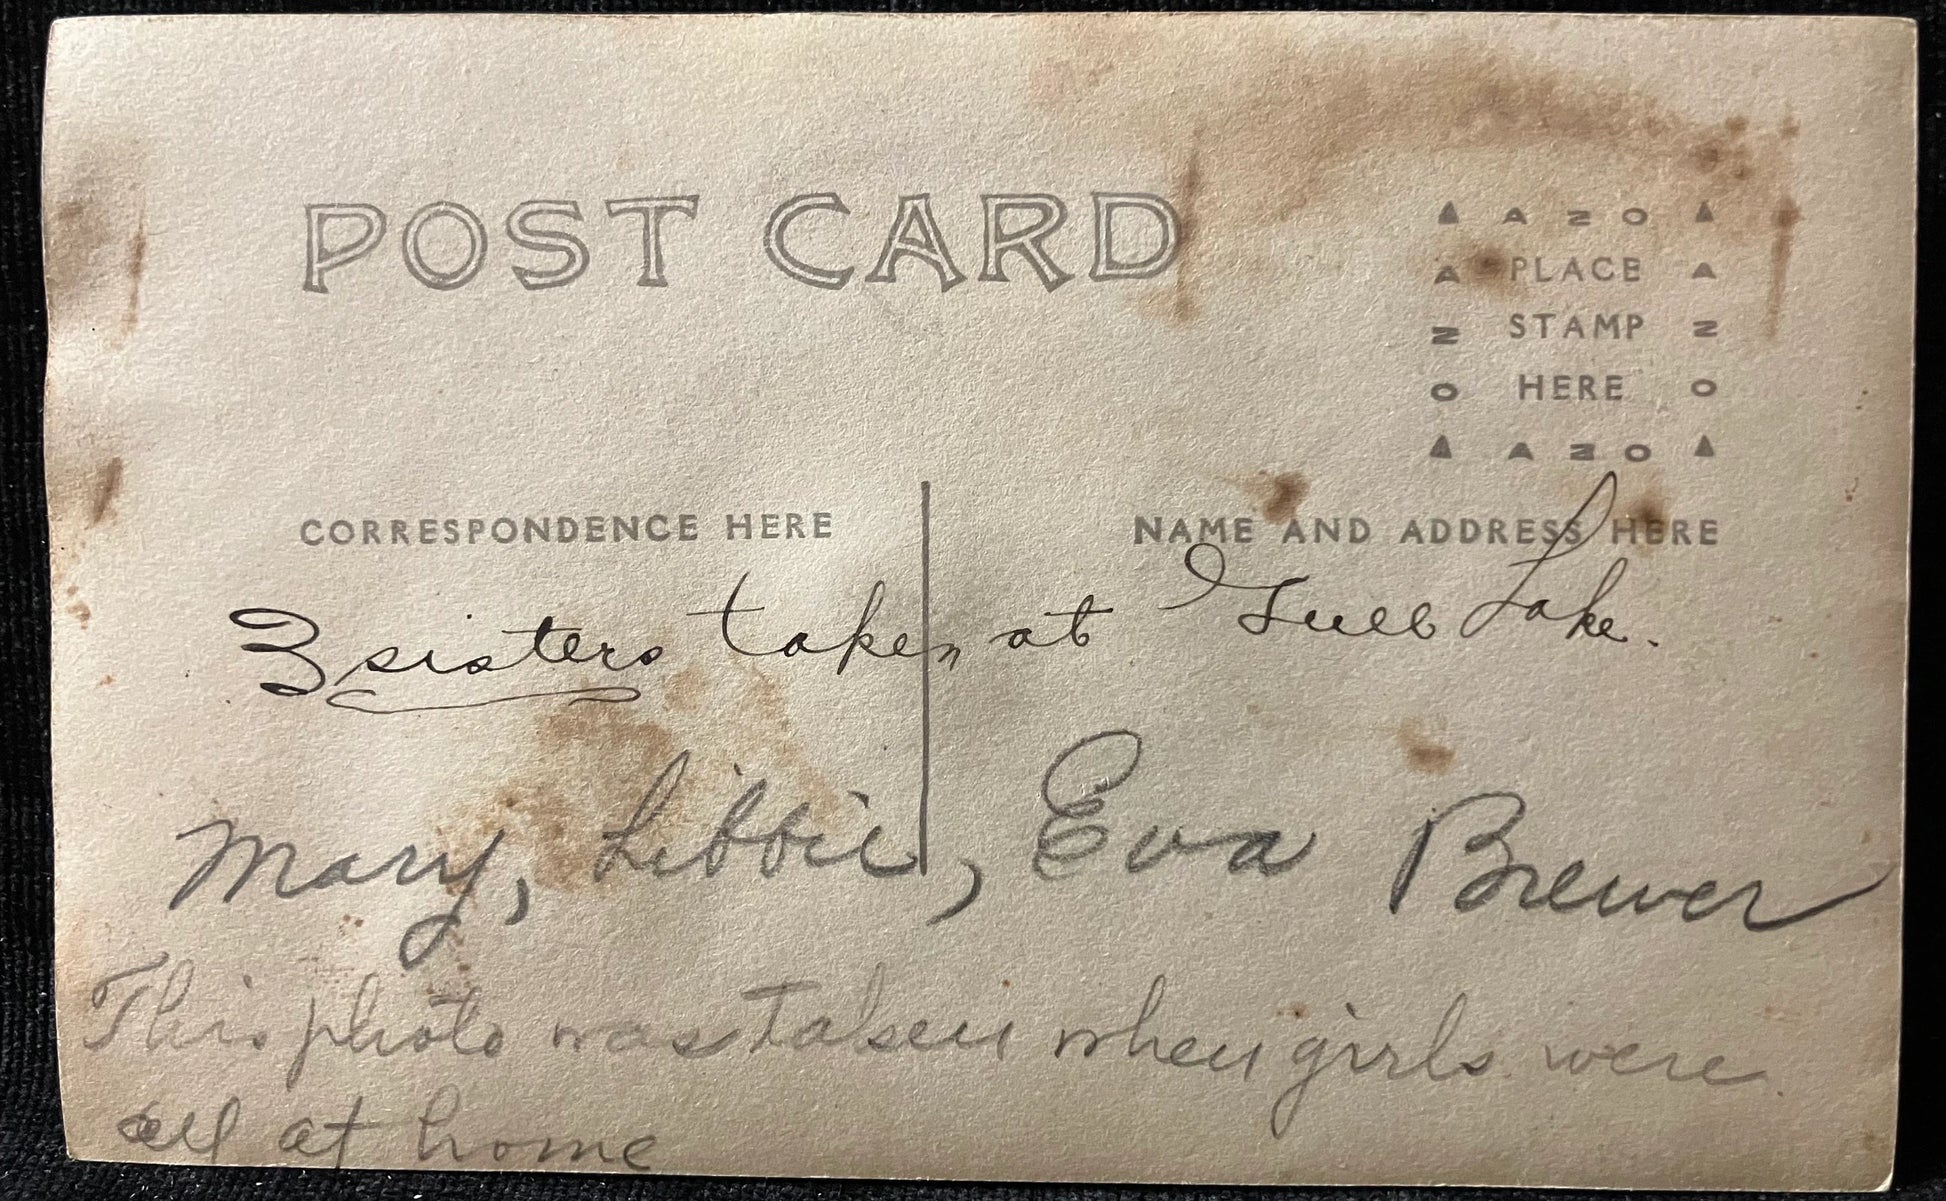 POST CARD
▲ A Z O ▲
A PLACE A
Z STAMP Z
O HERE O
▲ A Z O ▲
CORRESPONDENCE HERE
NAME AND ADDRESS HERE
3 sisters taken at Gull Lake.
Mary, Libbie, Eva Brewer
This photo was taken when girls were
all at home